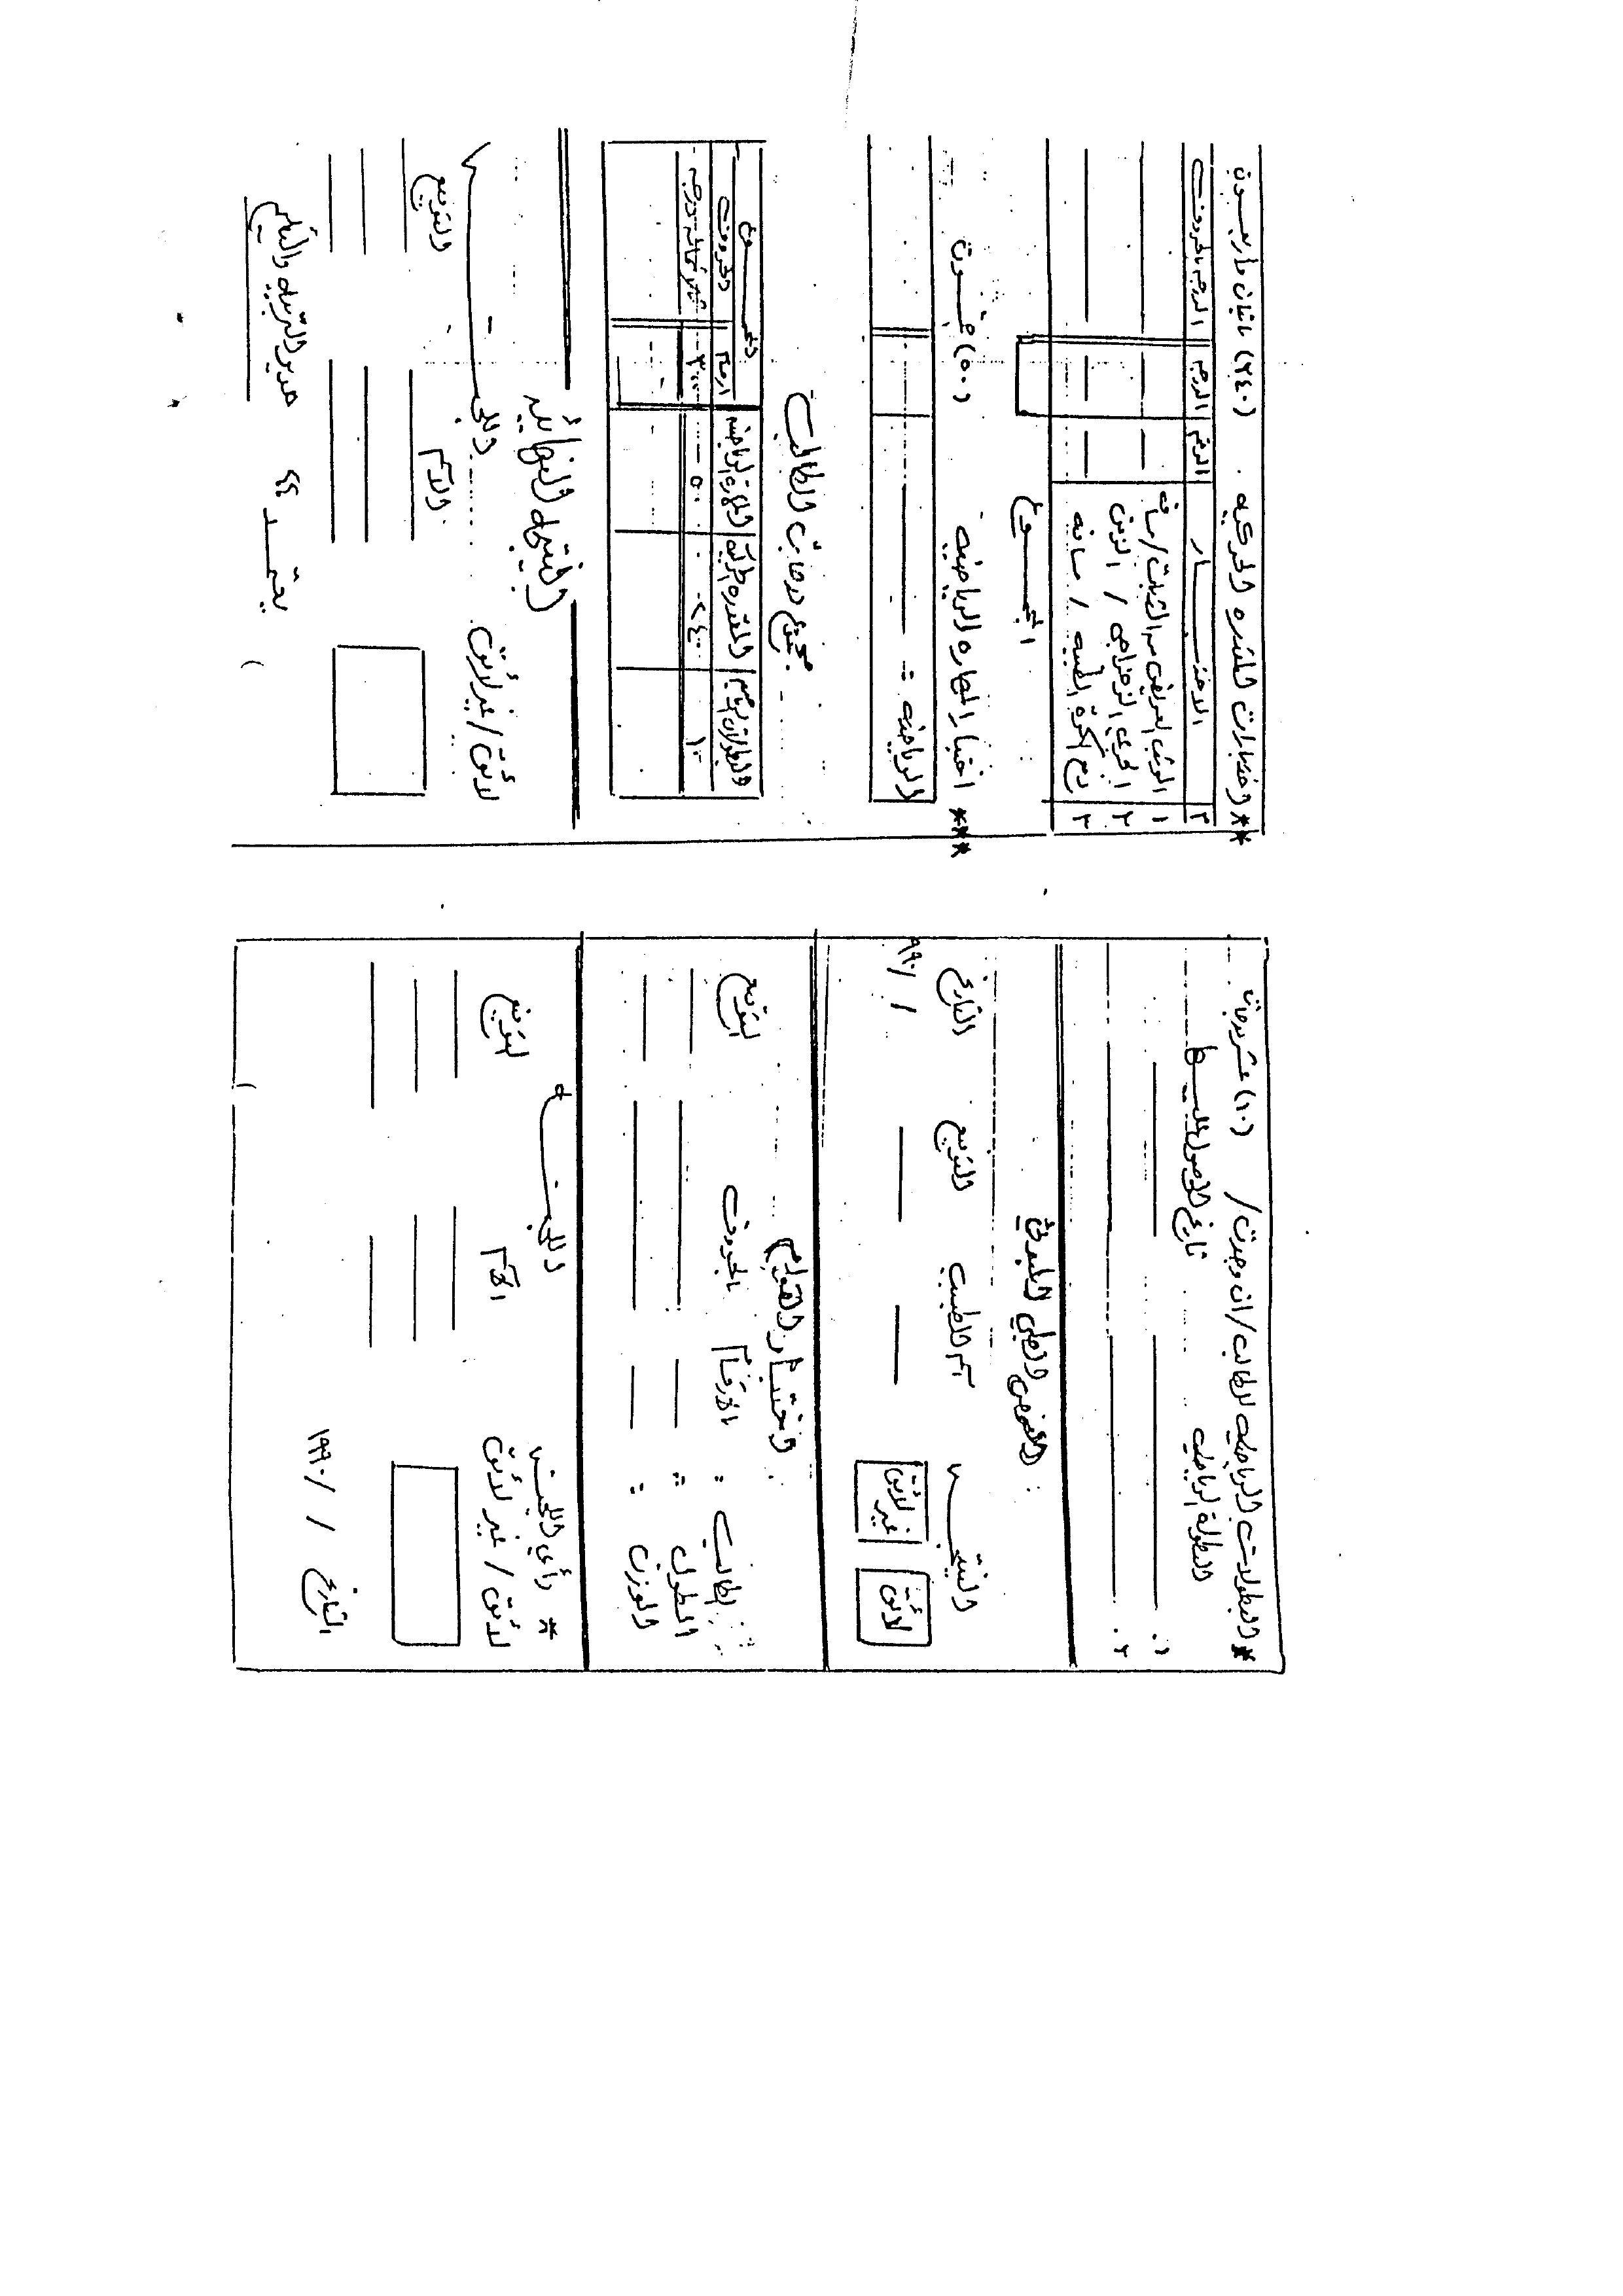 * البطولات الرياضية للطالب / ان وجدت / (١٠) عشر درجات
البطولة الرياضية تاريخ الحصول عليها
١.
٢.
الفحص الطبي البدني
النتيجة اسم الطبيب التوقيع التاريخ
لائق غير لائق / /١٩٩٠
اختبار القوام
الطالب : الأرقام بالحروف التوقيع
الطول :
الوزن :
* رأي اللجنة اللجنة
لائق / غير لائق الاسم التوقيع
التاريخ / /١٩٩٠
** اختبارات القدرة الحركية (٢٤٠) مائتان وأربعون
م الاختبار الرقم الدرجة الدرجة بالحروف
١ الوثب العريض من الثبات / مسافة
٢ الجري الزجزاجي / الزمن
٣ دفع الكرة الطبية / مسافة
المجموع
*** اختبار المهارة الرياضية (٥٠) خمسون
الرياضية =
مجموع درجات الطالب
البطولات الرياضية المقدرة الحركية المهارة الرياضية المجموع
أرقام حروف
١٠ ٢٤٠ ٥٠ ٣٠٠ ثلاثمائة درجة
النتيجة النهائية
لائق / غير لائق اللجنة
الاسم التوقيع
يعتمد ،،
مدير التربية والتعليم